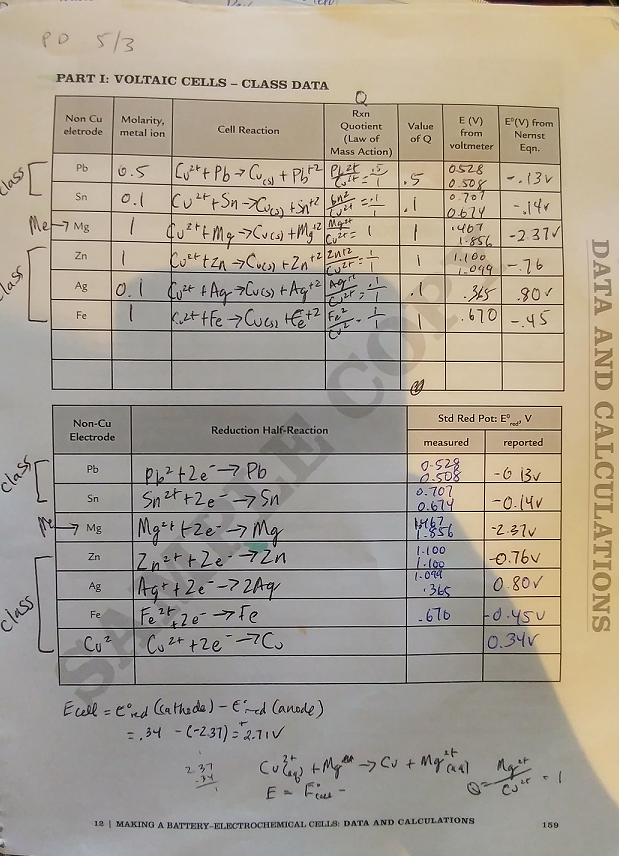 PD 5/3
PART I: VOLTAIC CELLS – CLASS DATA
Q
Non Cu eletrode
Molarity, metal ion
Cell Reaction
Rxn Quotient (Law of Mass Action)
Value of Q
E (V) from voltmeter
E°(V) from Nernst Eqn.
class
Pb 0.5 Cu²⁺ + Pb → Cu(s) + Pb⁺² Pb²⁺/Cu²⁺ = .5/1 .5 0.528 0.508 -.13v
Sn 0.1 Cu²⁺ + Sn → Cu(s) + Sn⁺² Sn²/Cu²⁺ = .1/1 .1 0.707 0.674 -.14v
Me → Mg 1 Cu²⁺ + Mg → Cu(s) + Mg⁺² Mg²⁺/Cu²⁺ = 1 1 1.856 -2.37v
class
Zn 1 Cu²⁺ + Zn → Cu(s) + Zn⁺² Zn⁺²/Cu²⁺ = 1/1 1 1.100 1.099 -.76
Ag 0.1 Cu²⁺ + Ag → Cu(s) + Ag⁺² Ag⁺²/Cu²⁺ = .1/1 .1 .365 .80v
Fe 1 Cu²⁺ + Fe → Cu(s) + Fe⁺² Fe²/Cu² = 1/1 1 .670 -.45
Non-Cu Electrode
Reduction Half-Reaction
Std Red Pot: E°red, V
measured
reported
class
Pb Pb² + 2e⁻ → Pb 0.528 0.508 -0.13v
Sn Sn²⁺ + 2e⁻ → Sn 0.707 0.674 -0.14v
Me → Mg Mg²⁺ + 2e⁻ → Mg 1.856 -2.37v
class
Zn Zn²⁺ + 2e⁻ → Zn 1.100 1.100 -0.76v
Ag Ag⁺ + 2e⁻ → 2Ag 1.099 .365 0.80v
Fe Fe²⁺ + 2e⁻ → Fe .670 -0.45v
Cu² Cu²⁺ + 2e⁻ → Cu 0.34v
Ecell = E°red (cathode) - E°red (anode)
= .34 - (-2.37) = + 2.71V
2.37
.34
Cu²⁺(aq) + Mg → Cu + Mg²⁺(aq) Q = Mg²⁺/Cu²⁺ = 1
E = E°cell -
12 | MAKING A BATTERY–ELECTROCHEMICAL CELLS: DATA AND CALCULATIONS
159
DATA AND CALCULATIONS
SAMPLE COPY